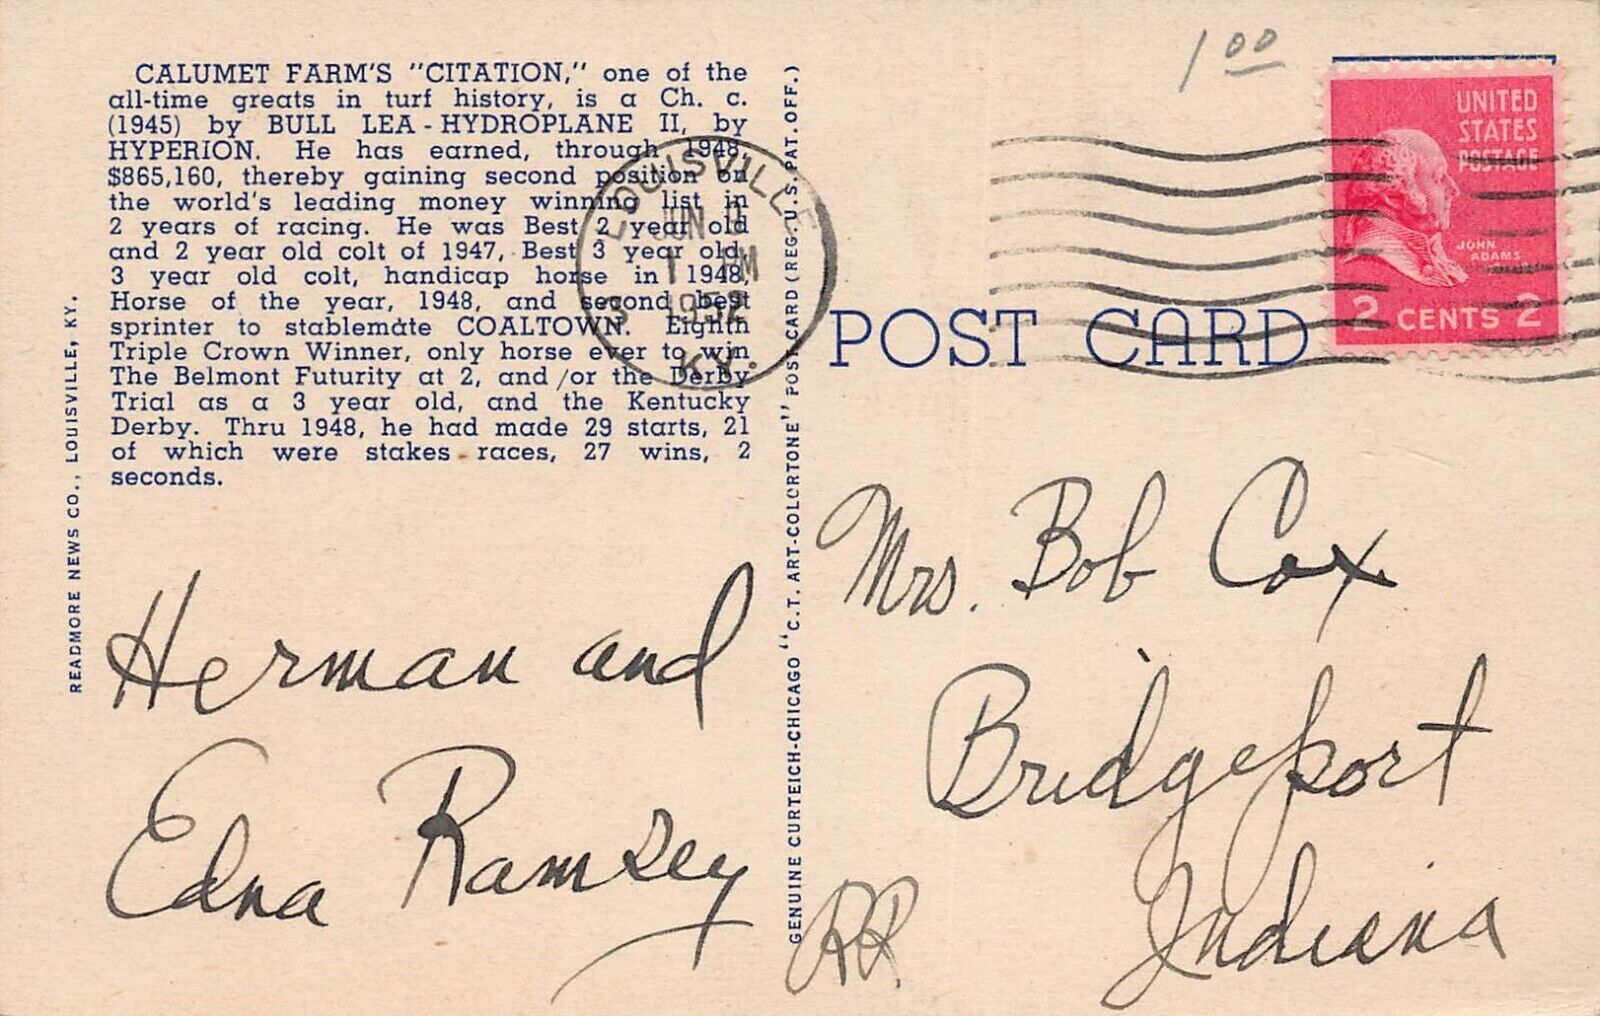 CALUMET FARM'S "CITATION," one of the
all-time greats in turf history, is a Ch. c.
(1945) by BULL LEA - HYDROPLANE II, by
HYPERION. He has earned, through 1948,
$865,160, thereby gaining second position on
the world's leading money winning list in
2 years of racing. He was Best 2 year old
and 2 year old colt of 1947, Best 3 year old,
3 year old colt, handicap horse in 1948,
Horse of the year, 1948, and second best
sprinter to stablemate COALTOWN. Eighth
Triple Crown Winner, only horse ever to win
The Belmont Futurity at 2, and/or the Derby
Trial as a 3 year old, and the Kentucky
Derby. Thru 1948, he had made 29 starts, 21
of which were stakes races, 27 wins, 2
seconds.
READMORE NEWS CO., LOUISVILLE, KY.
Herman and
Edna Ramsey
GENUINE CURTEICH-CHICAGO "C.T. ART-COLORTONE" POST CARD (REG. U.S. PAT. OFF.)
LOUISVILLE
JUN
1 PM
1952
3
KY.
1 00
UNITED
STATES
POSTAGE
JOHN
ADAMS
2 CENTS 2
POST CARD
Mrs. Bob Cox
Bridgeport
RR. Indiana